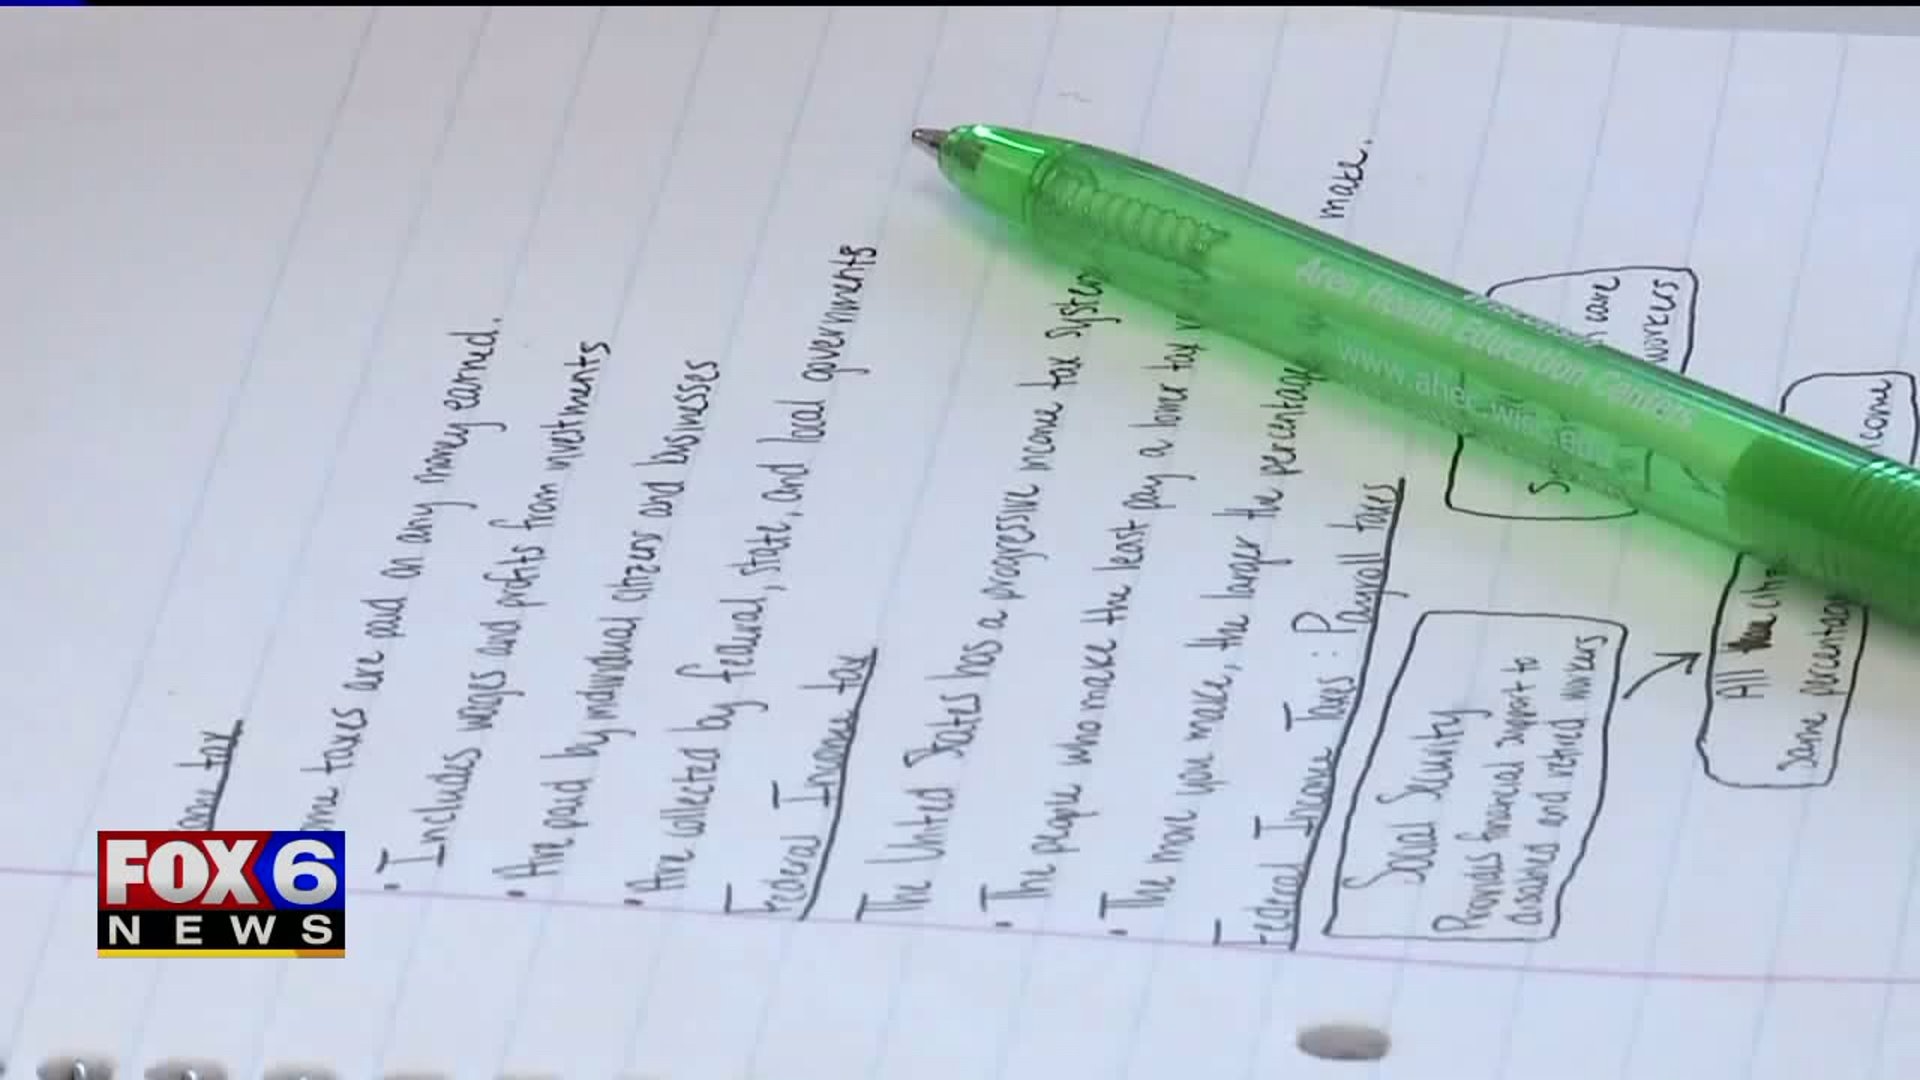 tax
taxes are paid on any money earned.
• Includes wages and profits from investments
• Are paid by individual citizens and businesses
• Are collected by federal, state, and local governments
Federal Income tax
The United States has a progressive income tax system
• The people who make the least pay a lower tax
• The more you make, the larger the percentage make.
Federal Income Taxes: Payroll taxes
Social Security
Provides financial support to
disabled and retired workers
care
workers.
All
same percentage
Area Health Education Centers
FOX 6
NEWS